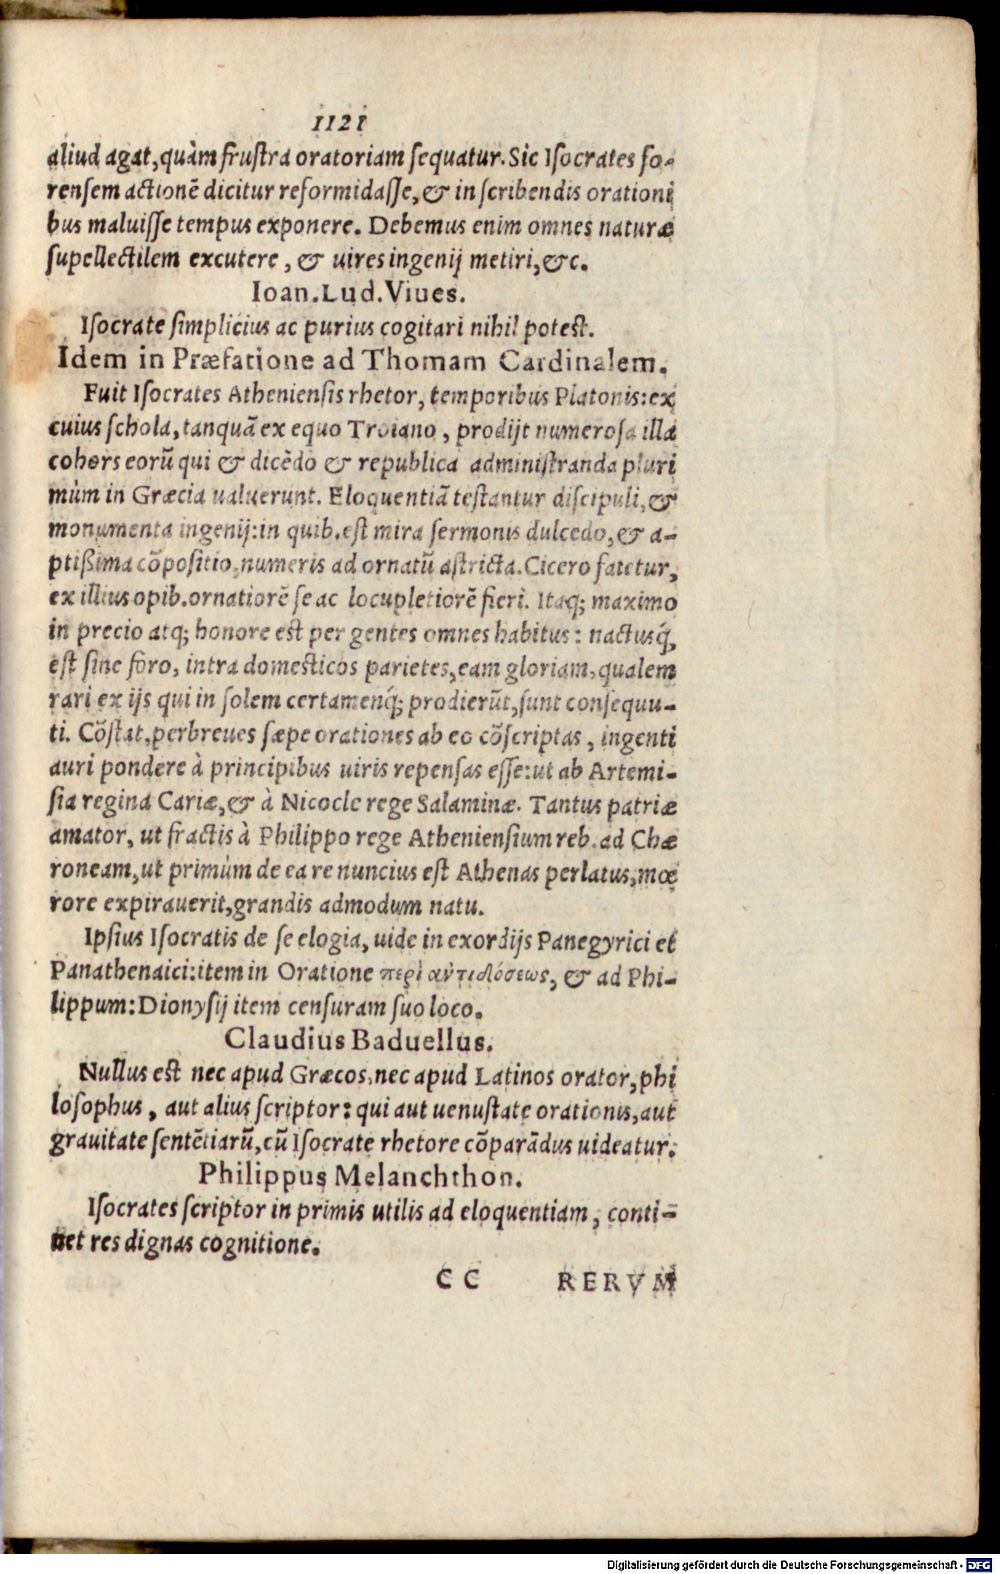 1121
aliud agat, quàm frustra oratoriam sequatur. Sic Isocrates fo-
rensem actionẽ dicitur reformidasse, & in scribendis orationi
bus maluisse tempus exponere. Debemus enim omnes naturæ
supellectilem excutere, & uires ingenij metiri, &c.
Ioan. Lud. Viues.
Isocrate simplicius ac purius cogitari nihil potest.
Idem in Præfatione ad Thomam Cardinalem.
Fuit Isocrates Atheniensis rhetor, temporibus Platonis: ex
cuius schola, tanquã ex equo Troiano, prodijt numerosa illa
cohors eorũ qui & dicẽdo & republica administranda pluri
mùm in Græcia ualuerunt. Eloquentiã testantur discipuli, &
monumenta ingenij: in quib. est mira sermonis dulcedo, & a-
ptißima cõpositio, numeris ad ornatũ astricta. Cicero fatetur,
ex illius opib. ornatiorẽ se ac locupletiorẽ fieri. Itaq; maximo
in precio atq; honore est per gentes omnes habitus: nactusq́;
est sine foro, intra domesticos parietes, eam gloriam, qualem
rari ex ijs qui in solem certamenq́; prodierũt, sunt consequu-
ti. Cõstat, perbreues sæpe orationes ab eo cõscriptas, ingenti
auri pondere à principibus uiris repensas esse: ut ab Artemi-
sia regina Cariæ, & à Nicocle rege Salaminæ. Tantus patriæ
amator, ut fractis à Philippo rege Atheniensium reb. ad Chæ
roneam, ut primùm de ea re nuncius est Athenas perlatus, mœ
rore expirauerit, grandis admodum natu.
Ipsius Isocratis de se elogia, uide in exordijs Panegyrici et
Panathenaici: item in Oratione περὶ ἀντιδόσεως, & ad Phi-
lippum: Dionysij item censuram suo loco.
Claudius Baduellus.
Nullus est nec apud Græcos, nec apud Latinos orator, phi
losophus, aut alius scriptor: qui aut uenustate orationis, aut
grauitate sentẽtiarũ, cũ Isocrate rhetore cõparãdus uideatur.
Philippus Melanchthon.
Isocrates scriptor in primis utilis ad eloquentiam, conti-
net res dignas cognitione.
CC RERVM
Digitalisierung gefördert durch die Deutsche Forschungsgemeinschaft - DFG